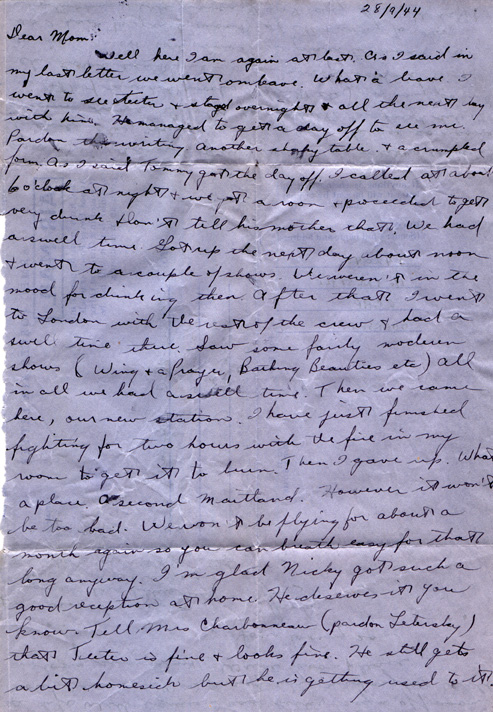 28/9/44
Dear Mom:
Well here I am again at last. As I said in
my last letter we went on leave. What a leave I
went to see Teeter & stayed overnight & all the next day
with him. He managed to get a day off to see me.
Pardon the writing another shaky table. & a crumpled
form. As I said Tommy got the day off. I called at about
6 o'clock at night & we got a room & proceeded to get
very drunk & don't tell his mother that. We had
a swell time Got up the next day about noon
& went to a couple of shows. We weren't in the
mood for drinking then. After that I went
to London with the rest of the crew & had a
swell time there. Saw some fairly modern
shows (Wing & a Prayer, Bathing Beauties etc) All
in all we had a swell time. Then we came
here, our new station. I have just finished
fighting for two hours with the fire in my
room to get it to burn. Then I gave up. What
a place. A second Maitland. However it won't
be too bad. We won't be flying for about a
month again so you can breath easy for that
long anyway. I'm glad Nicky got such a
good reception at home He deserves it you
know. Tell Mrs Charbonneau (pardon Letersky!)
that Teeter is fine & looks fine. He still gets
a bit homesick but he is getting used to it.